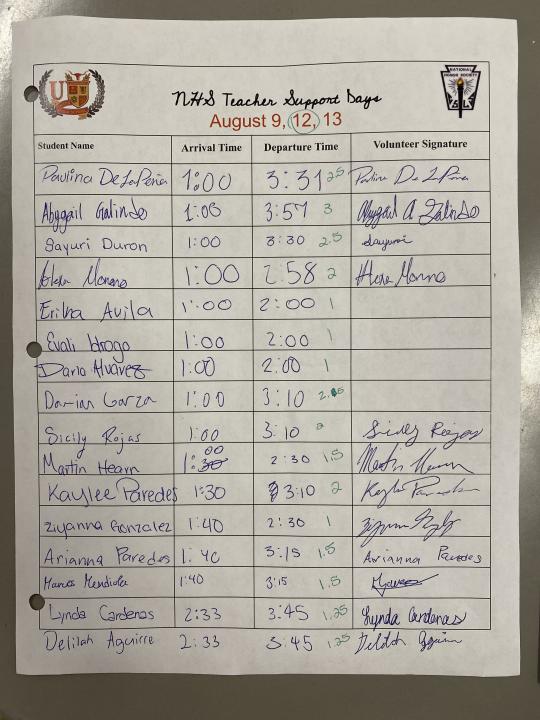 NHS Teacher Support Days
August 9, 12, 13
Student Name Arrival Time Departure Time Volunteer Signature
Paulina DeLaPeña 1:00 3:31 2.5 Paulina De La Pena
Abygail Galindo 1:03 3:57 3 Abygail A Galindo
Sayuri Duron 1:00 3:30 2.5 Sayuri
Moreno 1:00 2:58 2
Erika Avila 1:00 2:00 1
Evali Idrogo 1:00 2:00 1
Dario Alvarez 1:00 2:00 1
Damian Garza 1:00 3:10
Sicily Rojas 1:00 3:10 2 Sicily Rojas
Martin Hearn 1:00 2:30 1.5 Martin Hearn
Kaylee Paredes 1:30 3:10 2
Ziyanna Gonzalez 1:40 2:30 1
Arianna Paredes 1:40 3:15 1.5 Arianna Paredes
Marcos Mendiola 1:40 3:15 1.5
Lynda Cardenas 2:33 3:45 1.25 Lynda Cardenas
Delilah Aguirre 2:33 3:45 1.25 Delilah